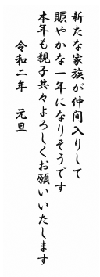 新たな家族が仲間入りして
賑やかな一年になりそうです
本年も親子共々よろしくお願いいたします
令和二年　元旦